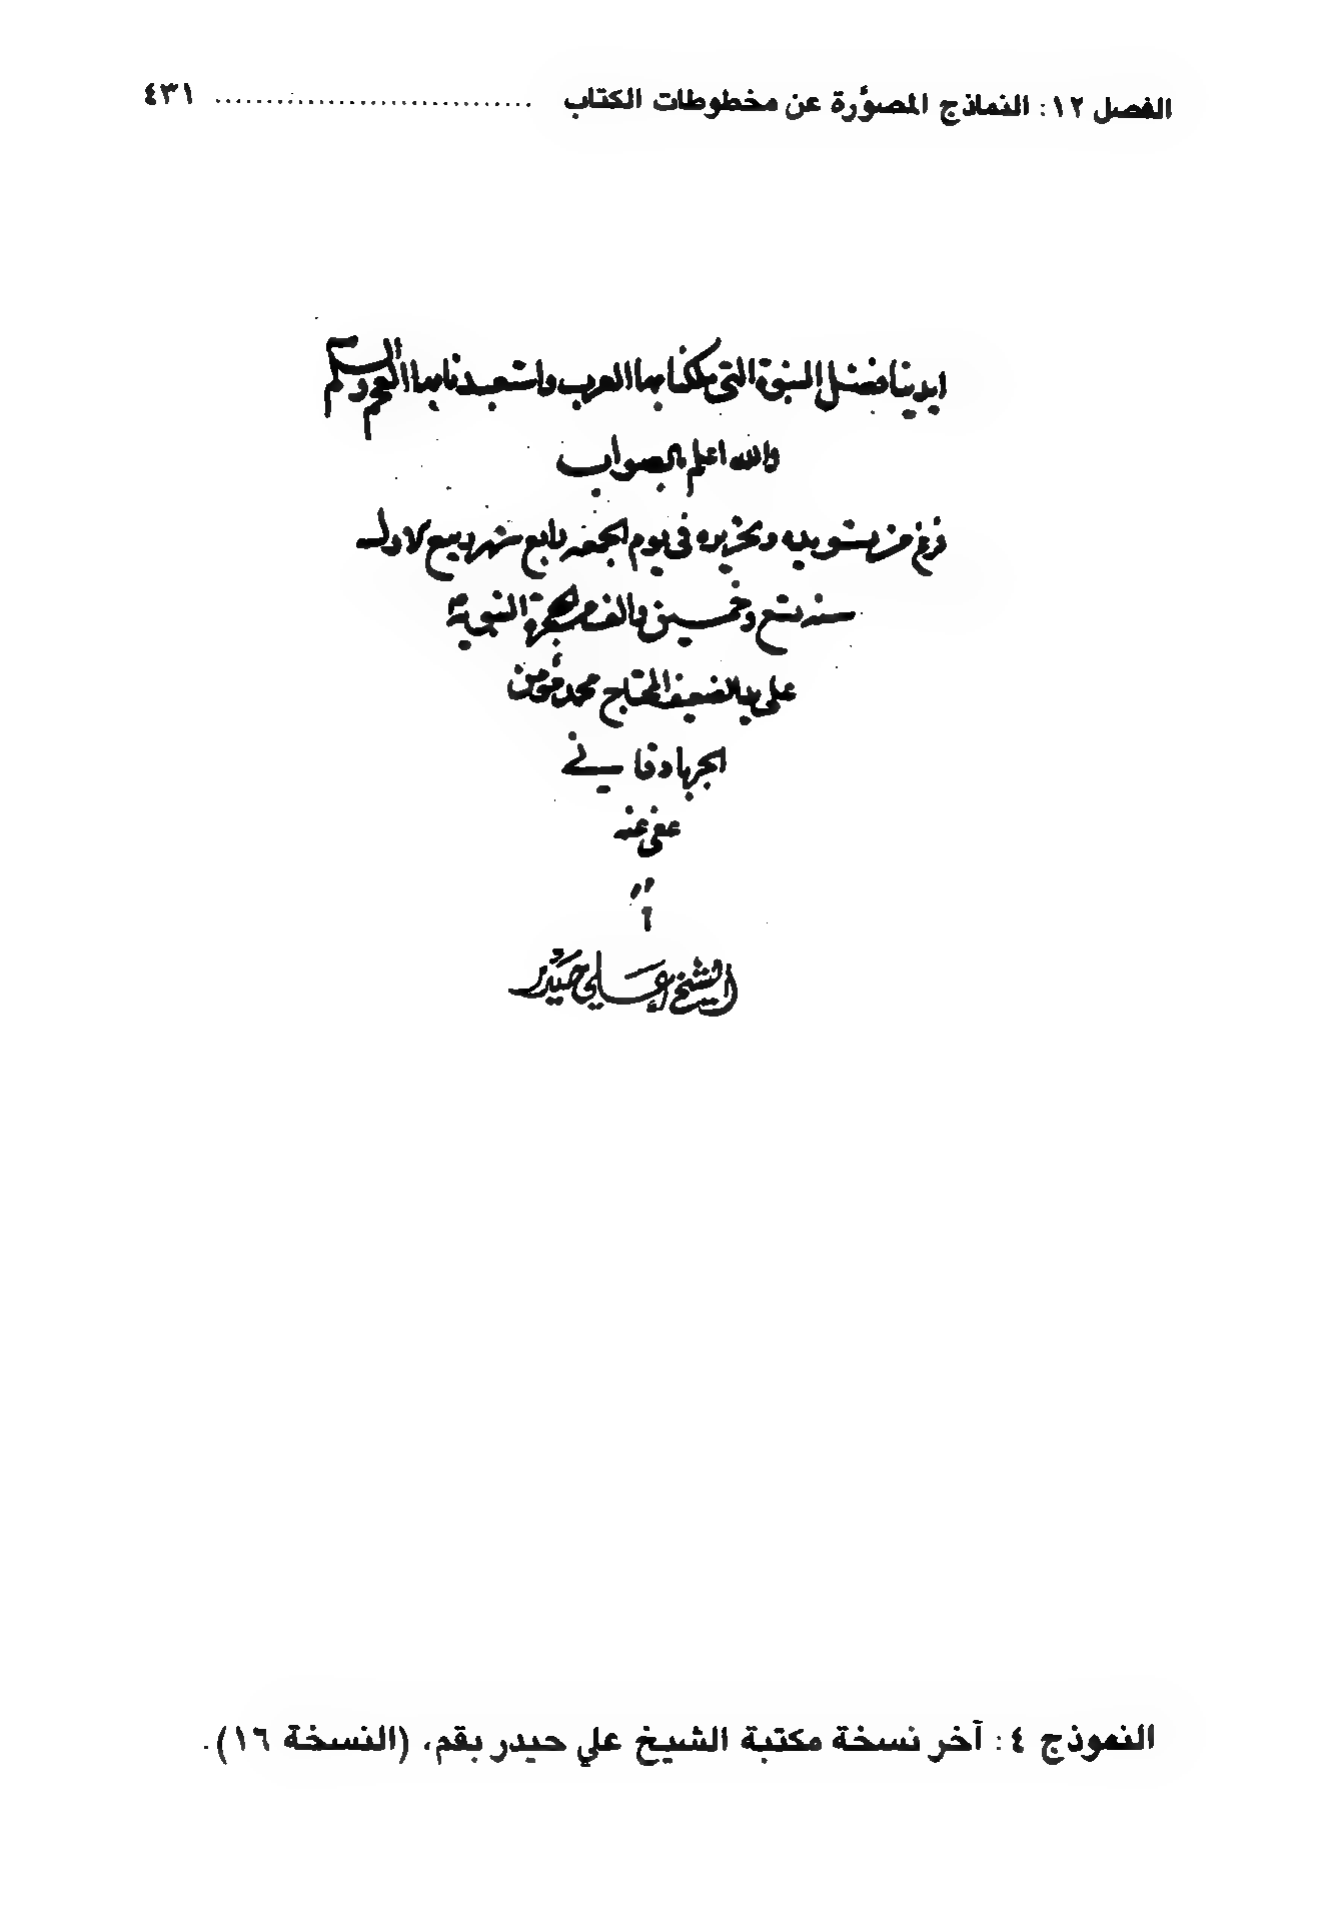 الفصل ١٢: النماذج المصوَّرة عن مخطوطات الكتاب .............................. ٤٣١
ايدينا فضل النبوة التى ملكنا بها العرب واستعبدنا بها العجم والسلم
والله اعلم بالصواب
فرغ من تسويده وتحريره فى يوم الجمعه رابع شهر ربيع الاول
سنه تسع وخمسين والف من الهجرة النبوية
على يد الضعيف المحتاج محمد مؤمن
الجرفادقاني
عفى عنه
الشيخ علي حيدر
النموذج ٤: آخر نسخة مكتبة الشيخ علي حيدر بقم، (النسخة ١٦).